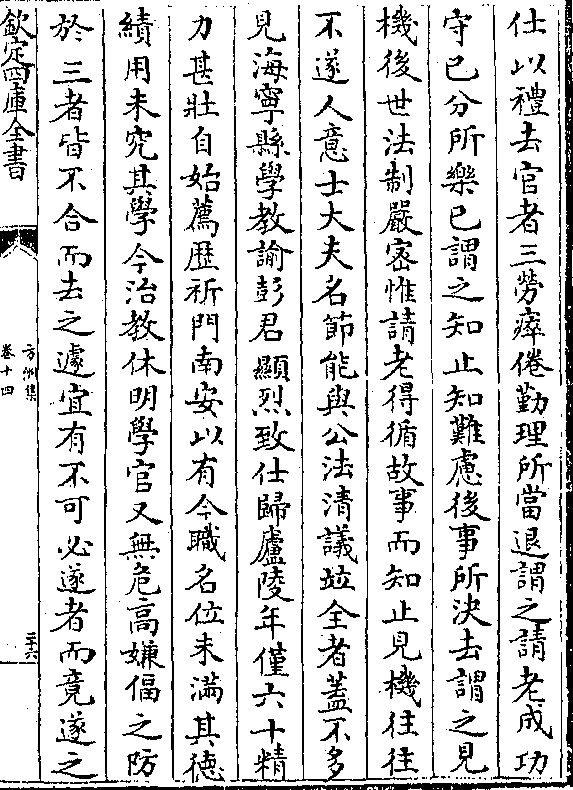 仕以禮去官者三勞瘁倦勤理所當退謂之請老成功
守已分所樂已謂之知止知難慮後事所決去謂之見
機後世法制嚴密惟請老得循故事而知止見機往往
不遂人意士大夫名節能與公法清議竝全者葢不多
見海寧縣學教諭彭君顯烈致仕歸廬陵年僅六十精
力甚壯自始薦歴祈門南安以有今職名位未滿其德
績用未究其學今治教休明學官又無危高嫌偪之防
於三者皆不合而去之遽宜有不可必遂者而竟遂之
欽定四庫全書
方洲集
卷十四
二十六